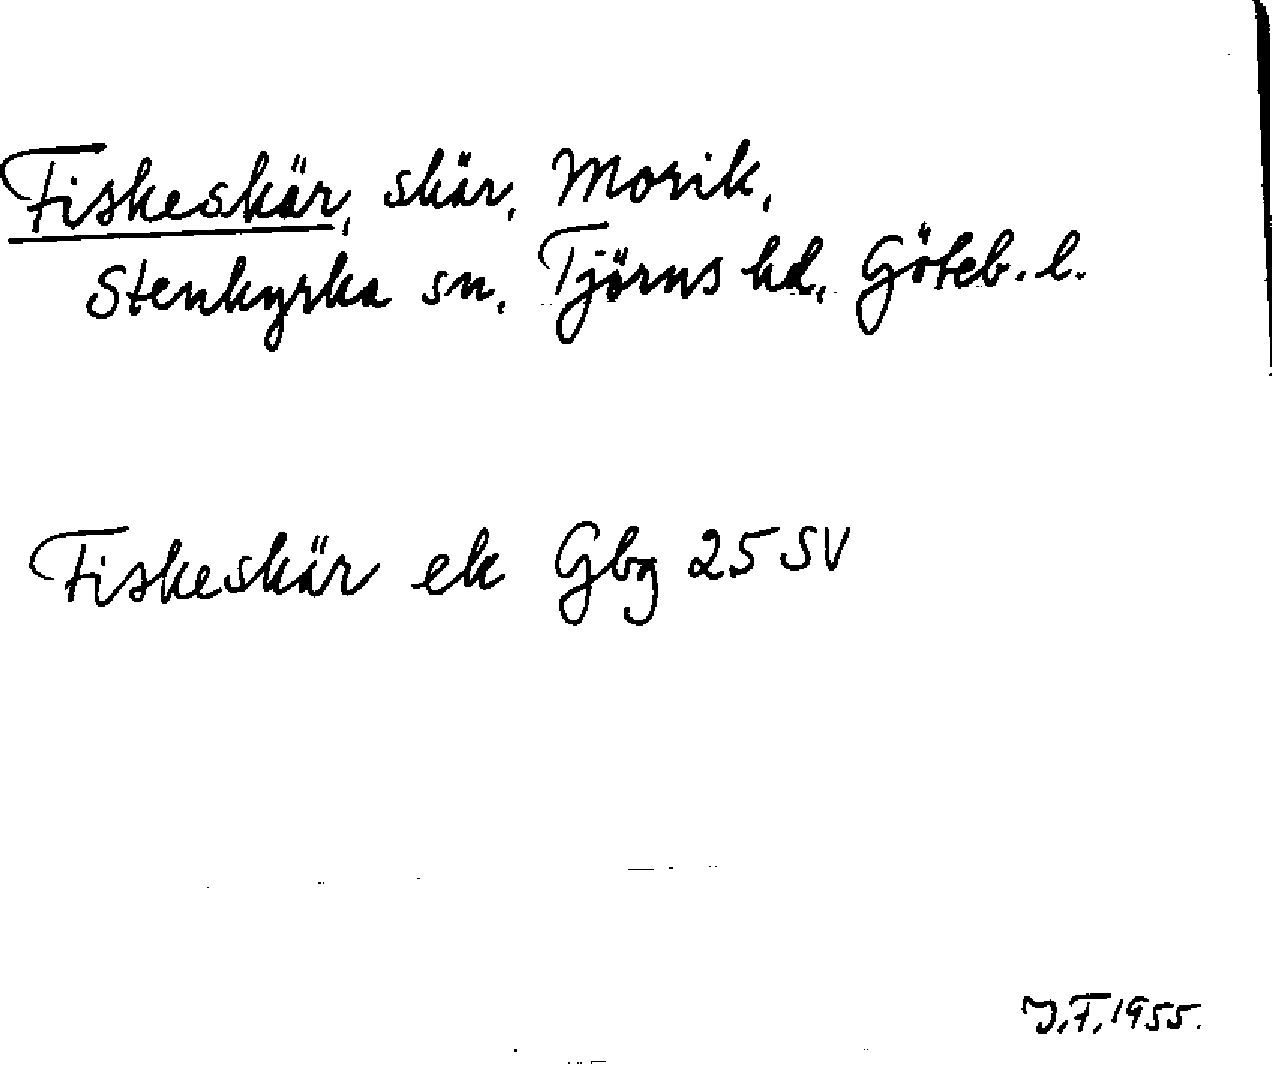 Fiskeskär, skär, Morik,
Stenkyrka sn, Tjörns hd, Göteb. l.
Fiskeskär ek Gbg 25 SV
J.F. 1955.